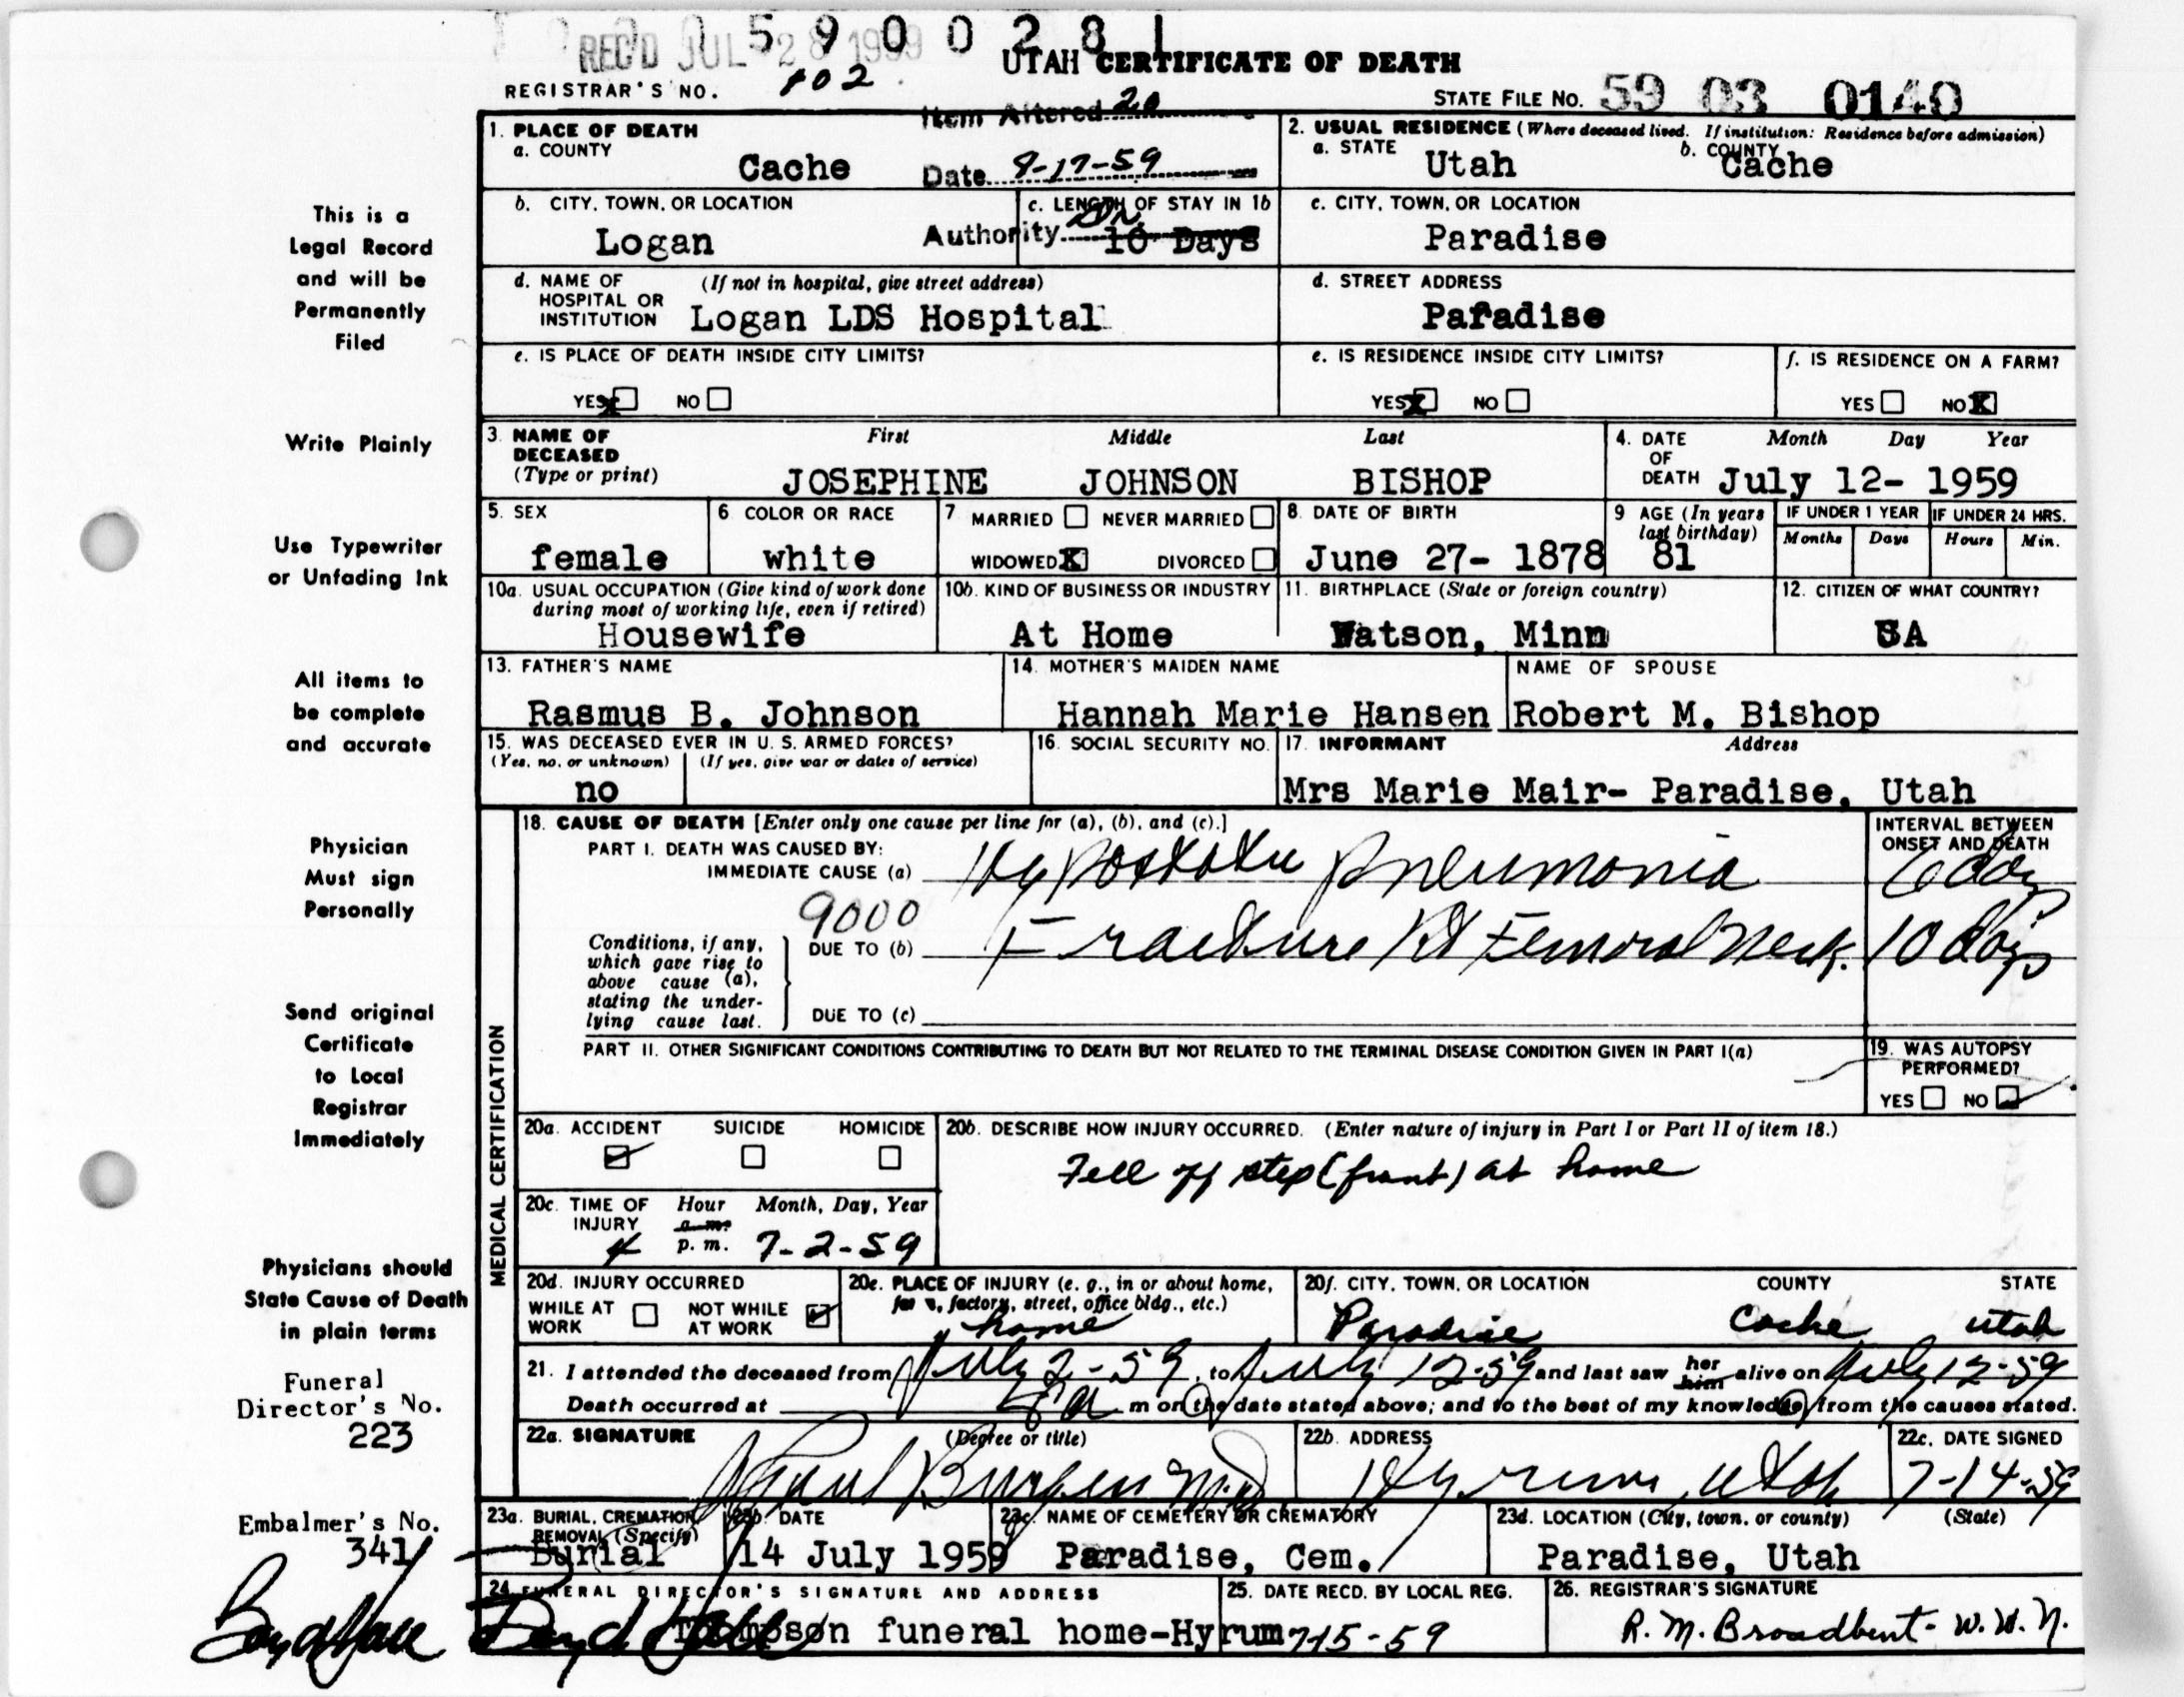 REC'D JUL 28 1959
590028 1
UTAH CERTIFICATE OF DEATH
REGISTRAR'S NO. 102
STATE FILE No. 59 03 0140
Item Altered 20
Date 8-17-59
Authority
1. PLACE OF DEATH
a. COUNTY
Cache
2. USUAL RESIDENCE (Where deceased lived. If institution: Residence before admission)
a. STATE Utah b. COUNTY Cache
b. CITY, TOWN, OR LOCATION
Logan
c. LENGTH OF STAY IN 1b
10 Days
c. CITY, TOWN, OR LOCATION
Paradise
d. NAME OF HOSPITAL OR INSTITUTION (If not in hospital, give street address)
Logan LDS Hospital
d. STREET ADDRESS
Paradise
e. IS PLACE OF DEATH INSIDE CITY LIMITS?
YES X NO
e. IS RESIDENCE INSIDE CITY LIMITS?
YES X NO
f. IS RESIDENCE ON A FARM?
YES NO X
3. NAME OF DECEASED (Type or print)
First Middle Last
JOSEPHINE JOHNSON BISHOP
4. DATE OF DEATH Month Day Year
July 12- 1959
5. SEX
female
6 COLOR OR RACE
white
7 MARRIED NEVER MARRIED
WIDOWED X DIVORCED
8. DATE OF BIRTH
June 27- 1878
9 AGE (In years last birthday)
81
IF UNDER 1 YEAR IF UNDER 24 HRS.
Months Days Hours Min.
10a. USUAL OCCUPATION (Give kind of work done during most of working life, even if retired)
Housewife
10b. KIND OF BUSINESS OR INDUSTRY
At Home
11. BIRTHPLACE (State or foreign country)
Watson, Minn
12. CITIZEN OF WHAT COUNTRY?
USA
13. FATHER'S NAME
Rasmus B. Johnson
14. MOTHER'S MAIDEN NAME
Hannah Marie Hansen
NAME OF SPOUSE
Robert M. Bishop
15. WAS DECEASED EVER IN U. S. ARMED FORCES?
(Yes, no, or unknown) (If yes, give war or dates of service)
no
16. SOCIAL SECURITY NO.
17. INFORMANT Address
Mrs Marie Mair- Paradise, Utah
MEDICAL CERTIFICATION
18. CAUSE OF DEATH [Enter only one cause per line for (a), (b), and (c).]
INTERVAL BETWEEN ONSET AND DEATH
PART I. DEATH WAS CAUSED BY:
IMMEDIATE CAUSE (a) Hypostatic pneumonia 6 days
9000
Conditions, if any, which gave rise to above cause (a), stating the underlying cause last.
DUE TO (b) Fracture Rt Femoral Neck. 10 days
DUE TO (c)
PART II. OTHER SIGNIFICANT CONDITIONS CONTRIBUTING TO DEATH BUT NOT RELATED TO THE TERMINAL DISEASE CONDITION GIVEN IN PART I(a)
19. WAS AUTOPSY PERFORMED?
YES NO
20a. ACCIDENT SUICIDE HOMICIDE
20b. DESCRIBE HOW INJURY OCCURRED. (Enter nature of injury in Part I or Part II of item 18.)
Fell off step (front) at home
20c. TIME OF INJURY Hour Month, Day, Year
a. m.
4 p. m. 7-2-59
20d. INJURY OCCURRED
WHILE AT WORK NOT WHILE AT WORK
20e. PLACE OF INJURY (e. g., in or about home, farm, factory, street, office bldg., etc.)
home
20f. CITY, TOWN, OR LOCATION COUNTY STATE
Paradise Cache Utah
21. I attended the deceased from July 2-59, to July 12-59 and last saw her him alive on July 12-59
Death occurred at m on the date stated above; and to the best of my knowledge, from the causes stated.
22a. SIGNATURE (Degree or title)
M.D.
22b. ADDRESS
Hyrum, Utah
22c. DATE SIGNED
7-14-59
23a. BURIAL, CREMATION, REMOVAL (Specify)
Burial
23b. DATE
14 July 1959
23c. NAME OF CEMETERY OR CREMATORY
Paradise, Cem.
23d. LOCATION (City, town, or county) (State)
Paradise, Utah
24 FUNERAL DIRECTOR'S SIGNATURE AND ADDRESS
Boyd Hall
Thompson funeral home-Hyrum
25. DATE RECD. BY LOCAL REG.
7-15-59
26. REGISTRAR'S SIGNATURE
R. M. Broadbent- W. W. N.
This is a
Legal Record
and will be
Permanently
Filed
Write Plainly
Use Typewriter
or Unfading Ink
All items to
be complete
and accurate
Physician
Must sign
Personally
Send original
Certificate
to Local
Registrar
Immediately
Physicians should
State Cause of Death
in plain terms
Funeral
Director's No.
223
Embalmer's No.
341
Boyd Hall